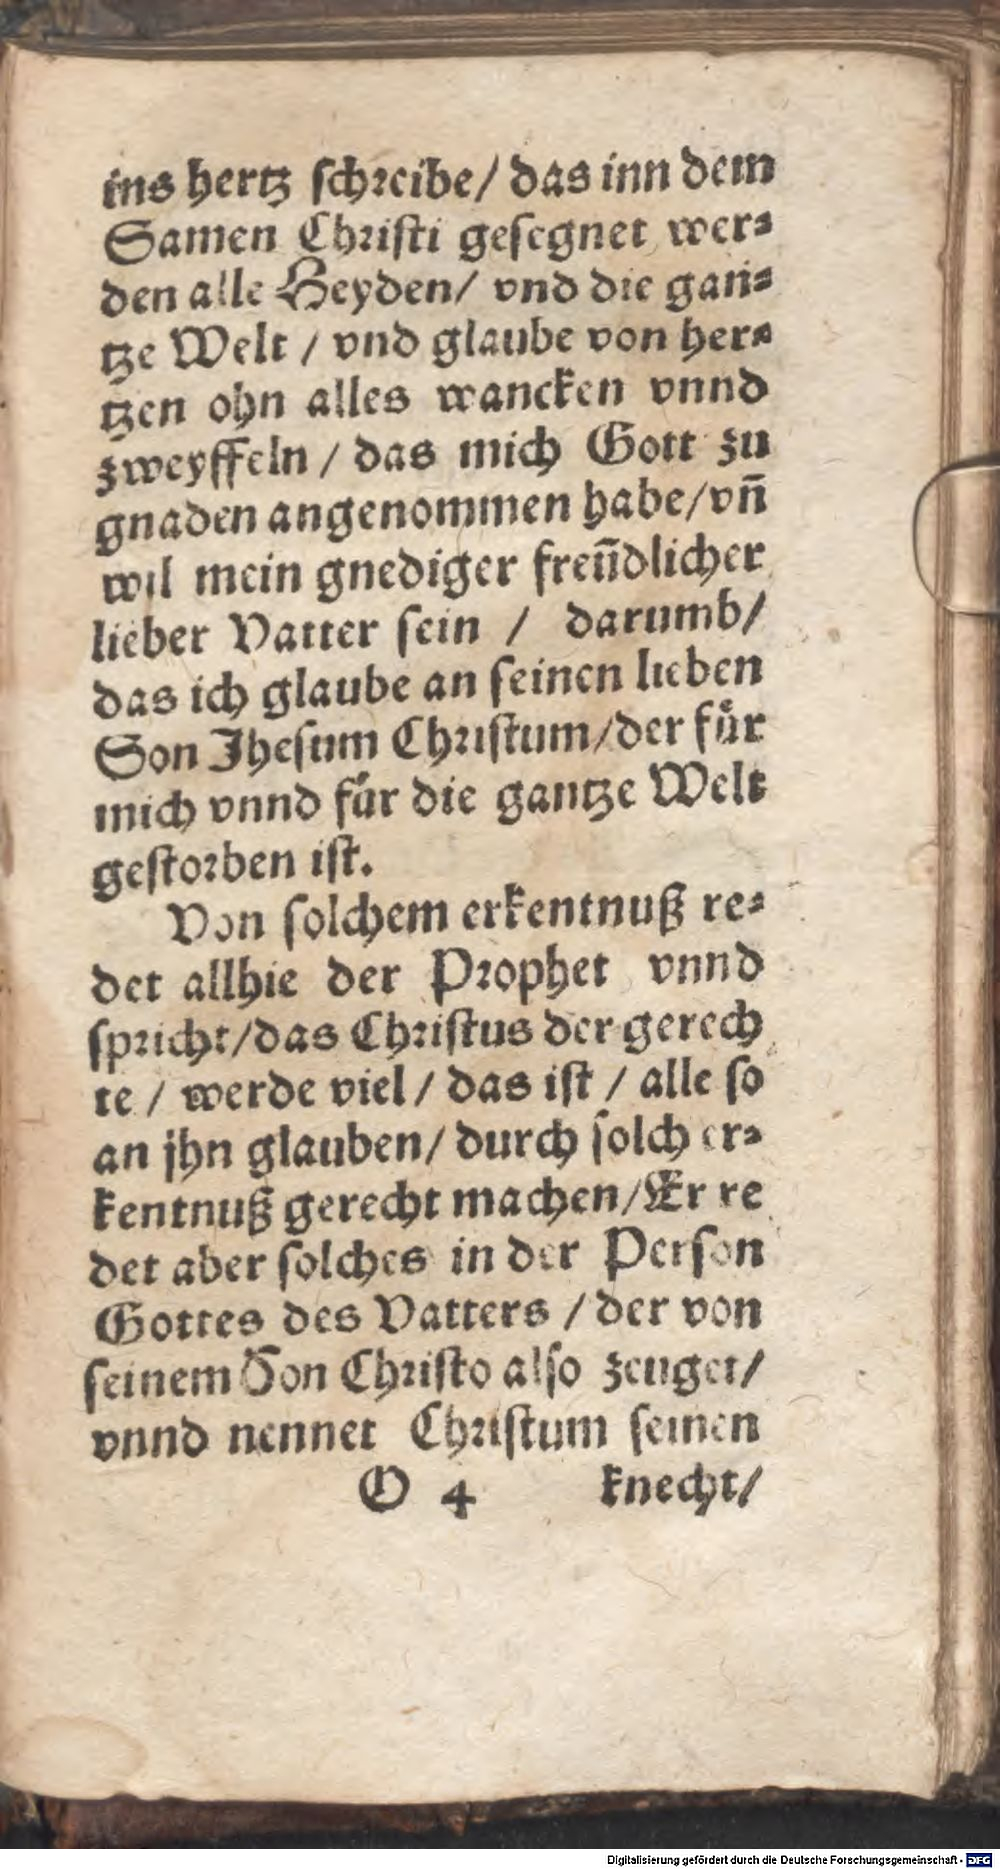 ins hertz ſchreibe/ das inn dem
Samen Chriſti geſegnet wer⸗
den alle Heyden/ vnd die gan⸗
tze Welt / vnd glaube von her⸗
tzen ohn alles wancken vnnd
zweyffeln / das mich Gott zu
gnaden angenommen habe/vn̄
wil mein gnediger freūdlicher
lieber Vatter ſein / darumb/
das ich glaube an ſeinen lieben
Son Jheſum Chriſtum/der fuͤr
mich vnnd fuͤr die gantze Welt
geſtorben iſt.
Von ſolchem erkentnuß re⸗
det allhie der Prophet vnnd
ſpricht/das Chriſtus der gerech
te / werde viel / das iſt / alle ſo
an jhn glauben/ durch ſolch er⸗
kentnuß gerecht machen/Er re
det aber ſolches in der Perſon
Gottes des Vatters / der von
ſeinem Son Chriſto alſo zeuget/
vnnd nennet Chriſtum ſeinen
O 4 knecht/
Digitalisierung gefördert durch die Deutsche Forschungsgemeinschaft - DFG